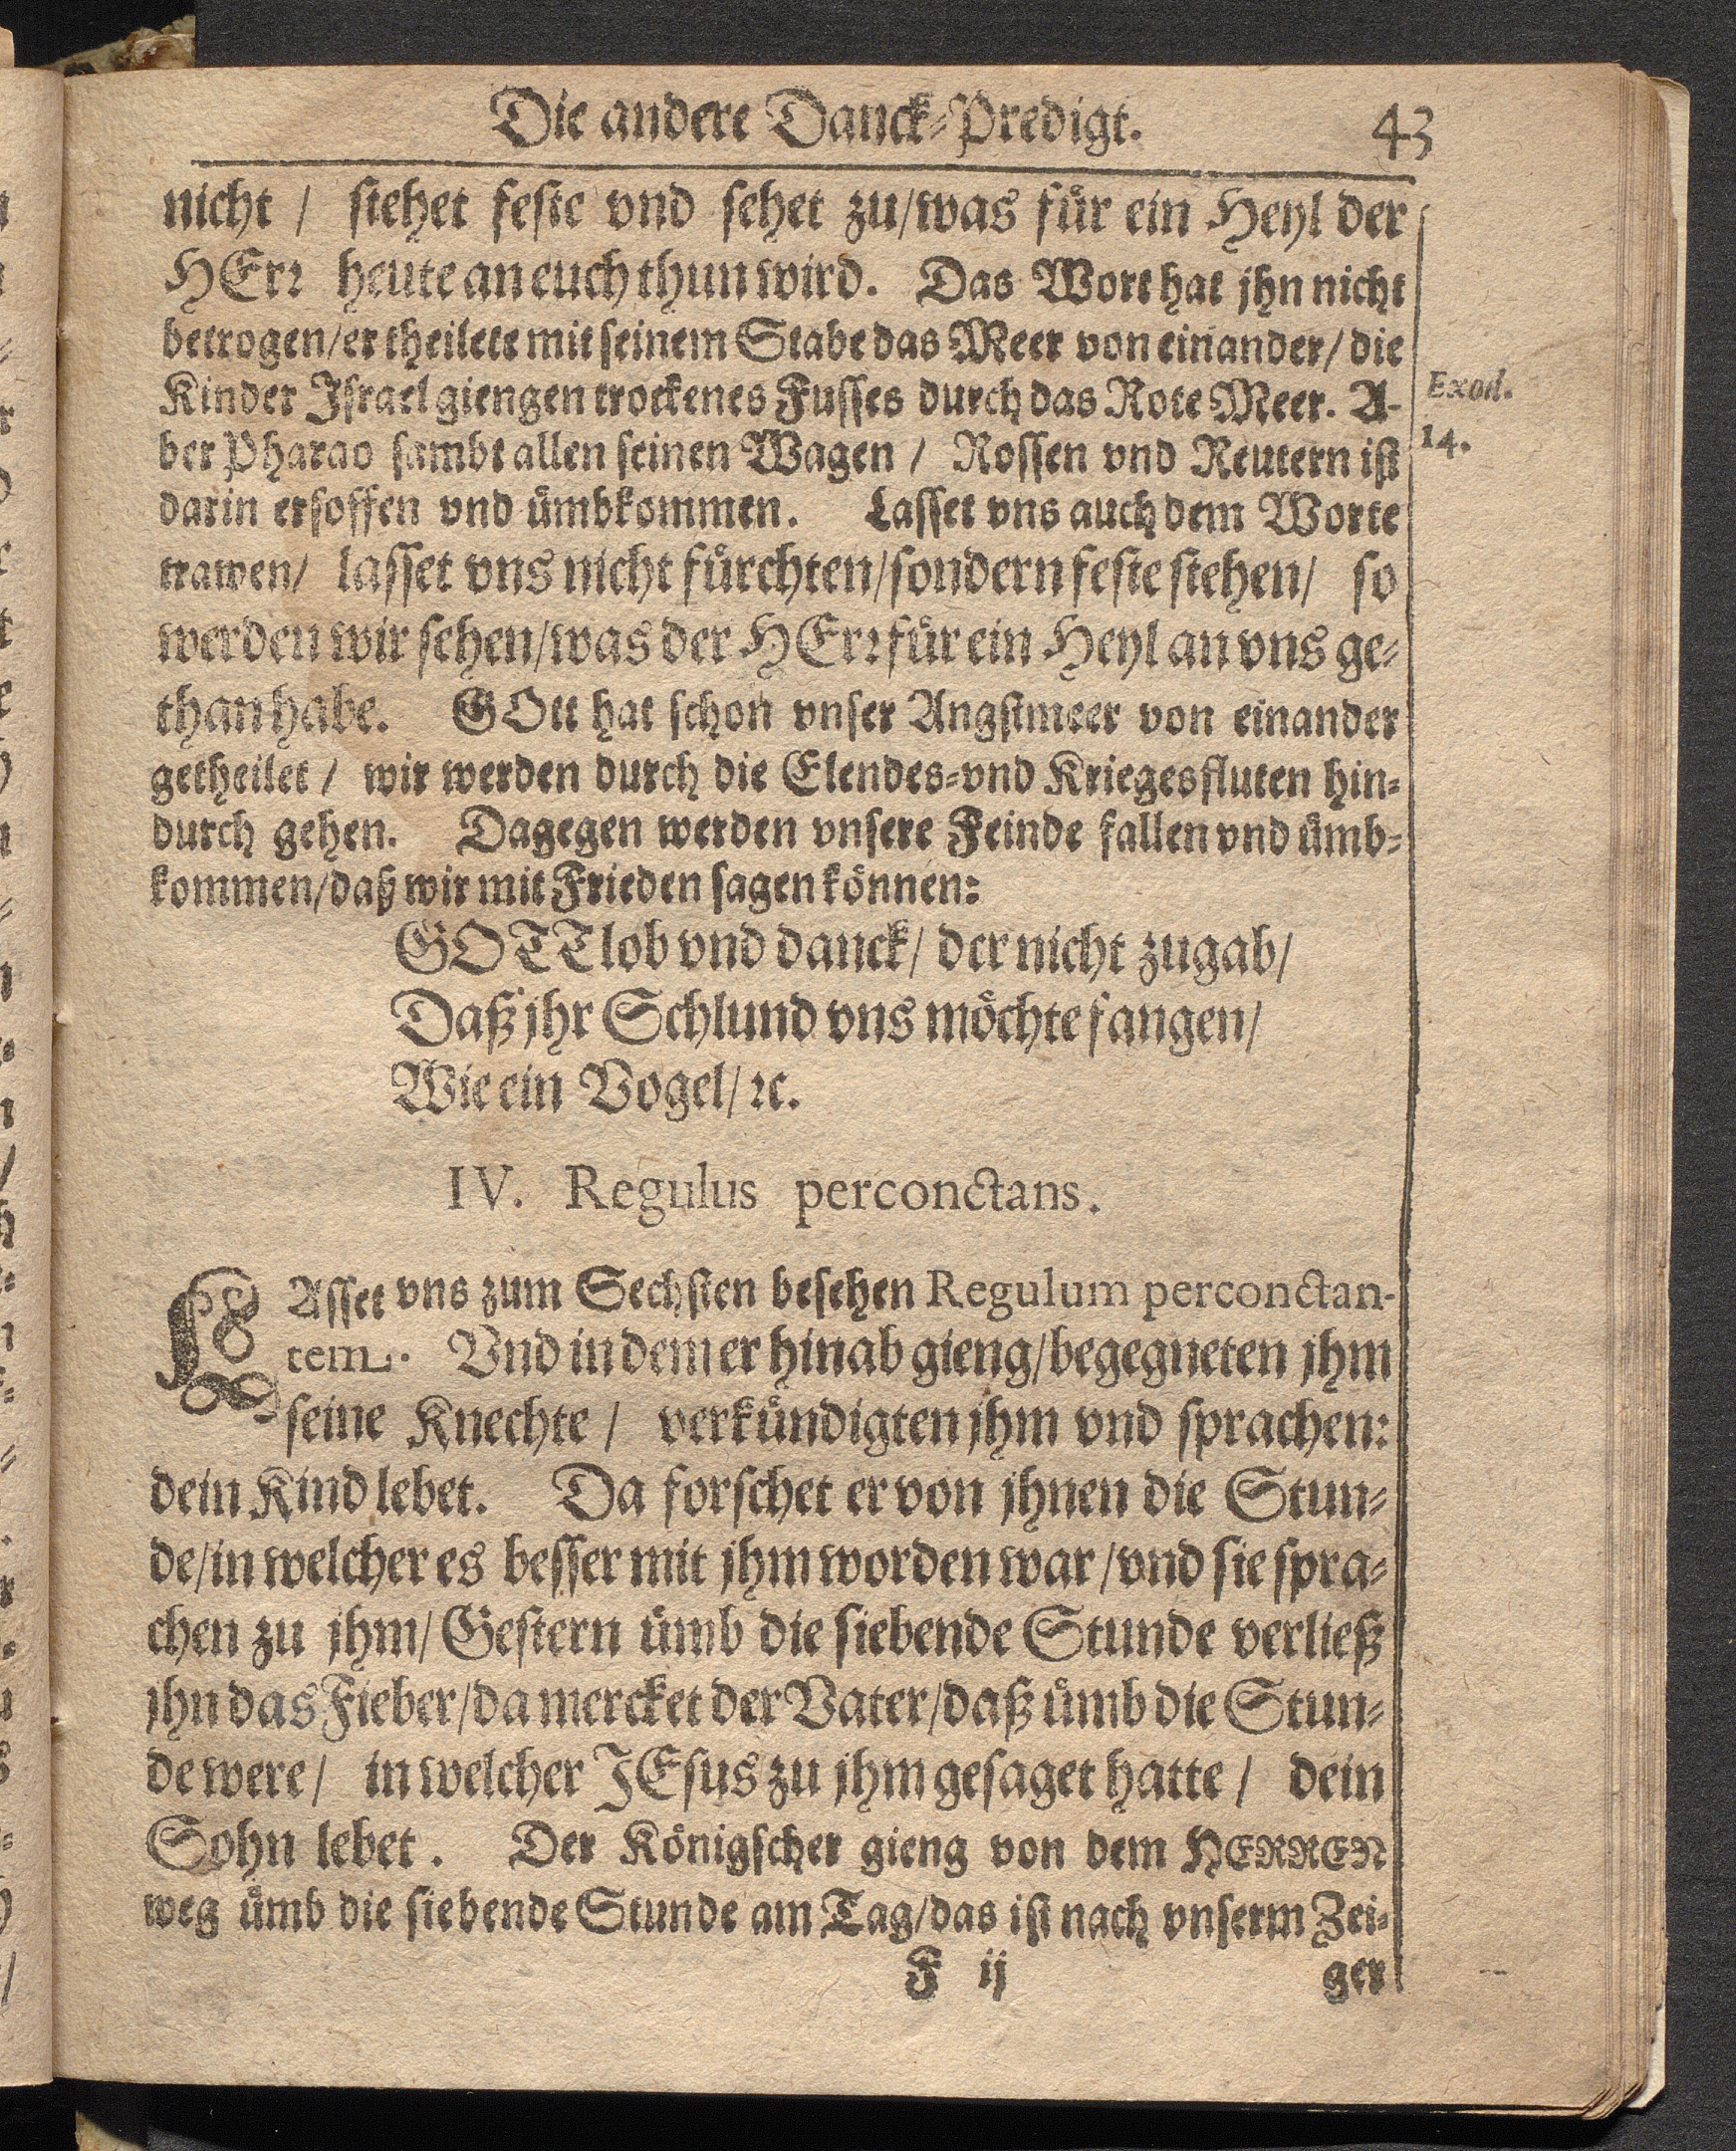 Die andere Danck-Predigt. 43
nicht / stehet feste vnd sehet zu/was für ein Heyl der
HErr heute an euch thun wird. Das Wort hat jhn nicht
betrogen/er theilete mit seinem Stabe das Meer von einander/ die
Kinder Israel giengen trockenes Fusses durch das Rote Meer. A-
Exod.
ber Pharao sambt allen seinen Wagen / Rossen vnd Reutern ist
14.
darin ersoffen vnd ümbkommen. Lasset vns auch dem Worte
trawen/ lasset vns nicht fürchten/sondern feste stehen/ so
werden wir sehen/was der HErr für ein Heyl an vns ge-
than habe. GOtt hat schon vnser Angstmeer von einander
getheilet / wir werden durch die Elendes-vnd Kriegesfluten hin-
durch gehen. Dagegen werden vnsere Feinde fallen vnd ümb-
kommen/daß wir mit Frieden sagen können:
GOTT lob vnd danck/ der nicht zugab/
Daß jhr Schlund vns möchte fangen/
Wie ein Vogel/ ꝛc.
IV. Regulus perconctans.
LAsset vns zum Sechsten besehen Regulum perconctan-
tem. Vnd in dem er hinab gieng/begegneten jhm
seine Knechte / verkündigten jhm vnd sprachen:
dein Kind lebet. Da forschet er von jhnen die Stun-
de/in welcher es besser mit jhm worden war/vnd sie spra-
chen zu jhm/ Gestern ümb die siebende Stunde verließ
jhn das Fieber/da mercket der Vater/daß ümb die Stun-
de were/ in welcher JEsus zu jhm gesaget hatte / dein
Sohn lebet. Der Königscher gieng von dem HERREN
weg ümb die siebende Stunde am Tag/das ist nach vnserm Zei-
F ij ger